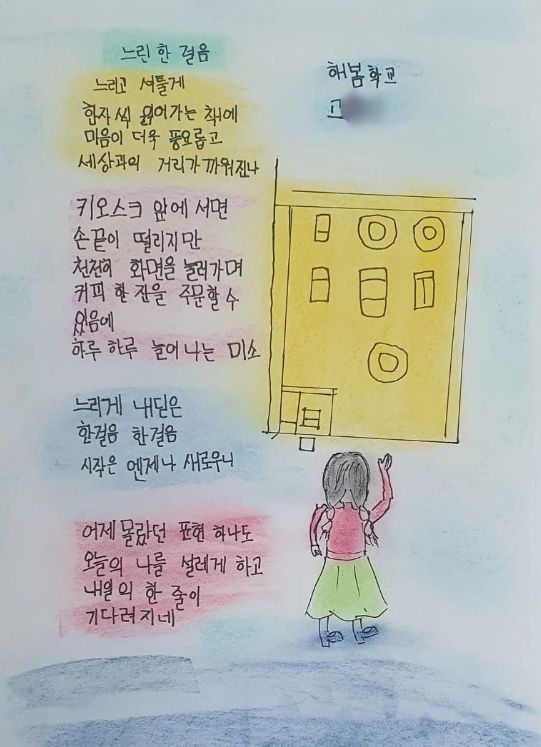 느린 한 걸음
해봄학교
고
느리고 서툴게
한자씩 읽어가는 책에
마음이 더욱 풍요롭고
세상과의 거리가 까워진나
키오스크 앞에 서면
손끝이 떨리지만
천천히 화면을 눌러가며
커피 한 잔을 주문할 수
있음에
하루 하루 늘어 나는 미소
느리게 내딛은
한걸음 한걸음
시작은 언제나 새로우니
어제 몰랐던 표현 하나도
오늘의 나를 설레게 하고
내일의 한 줄이
기다려지네